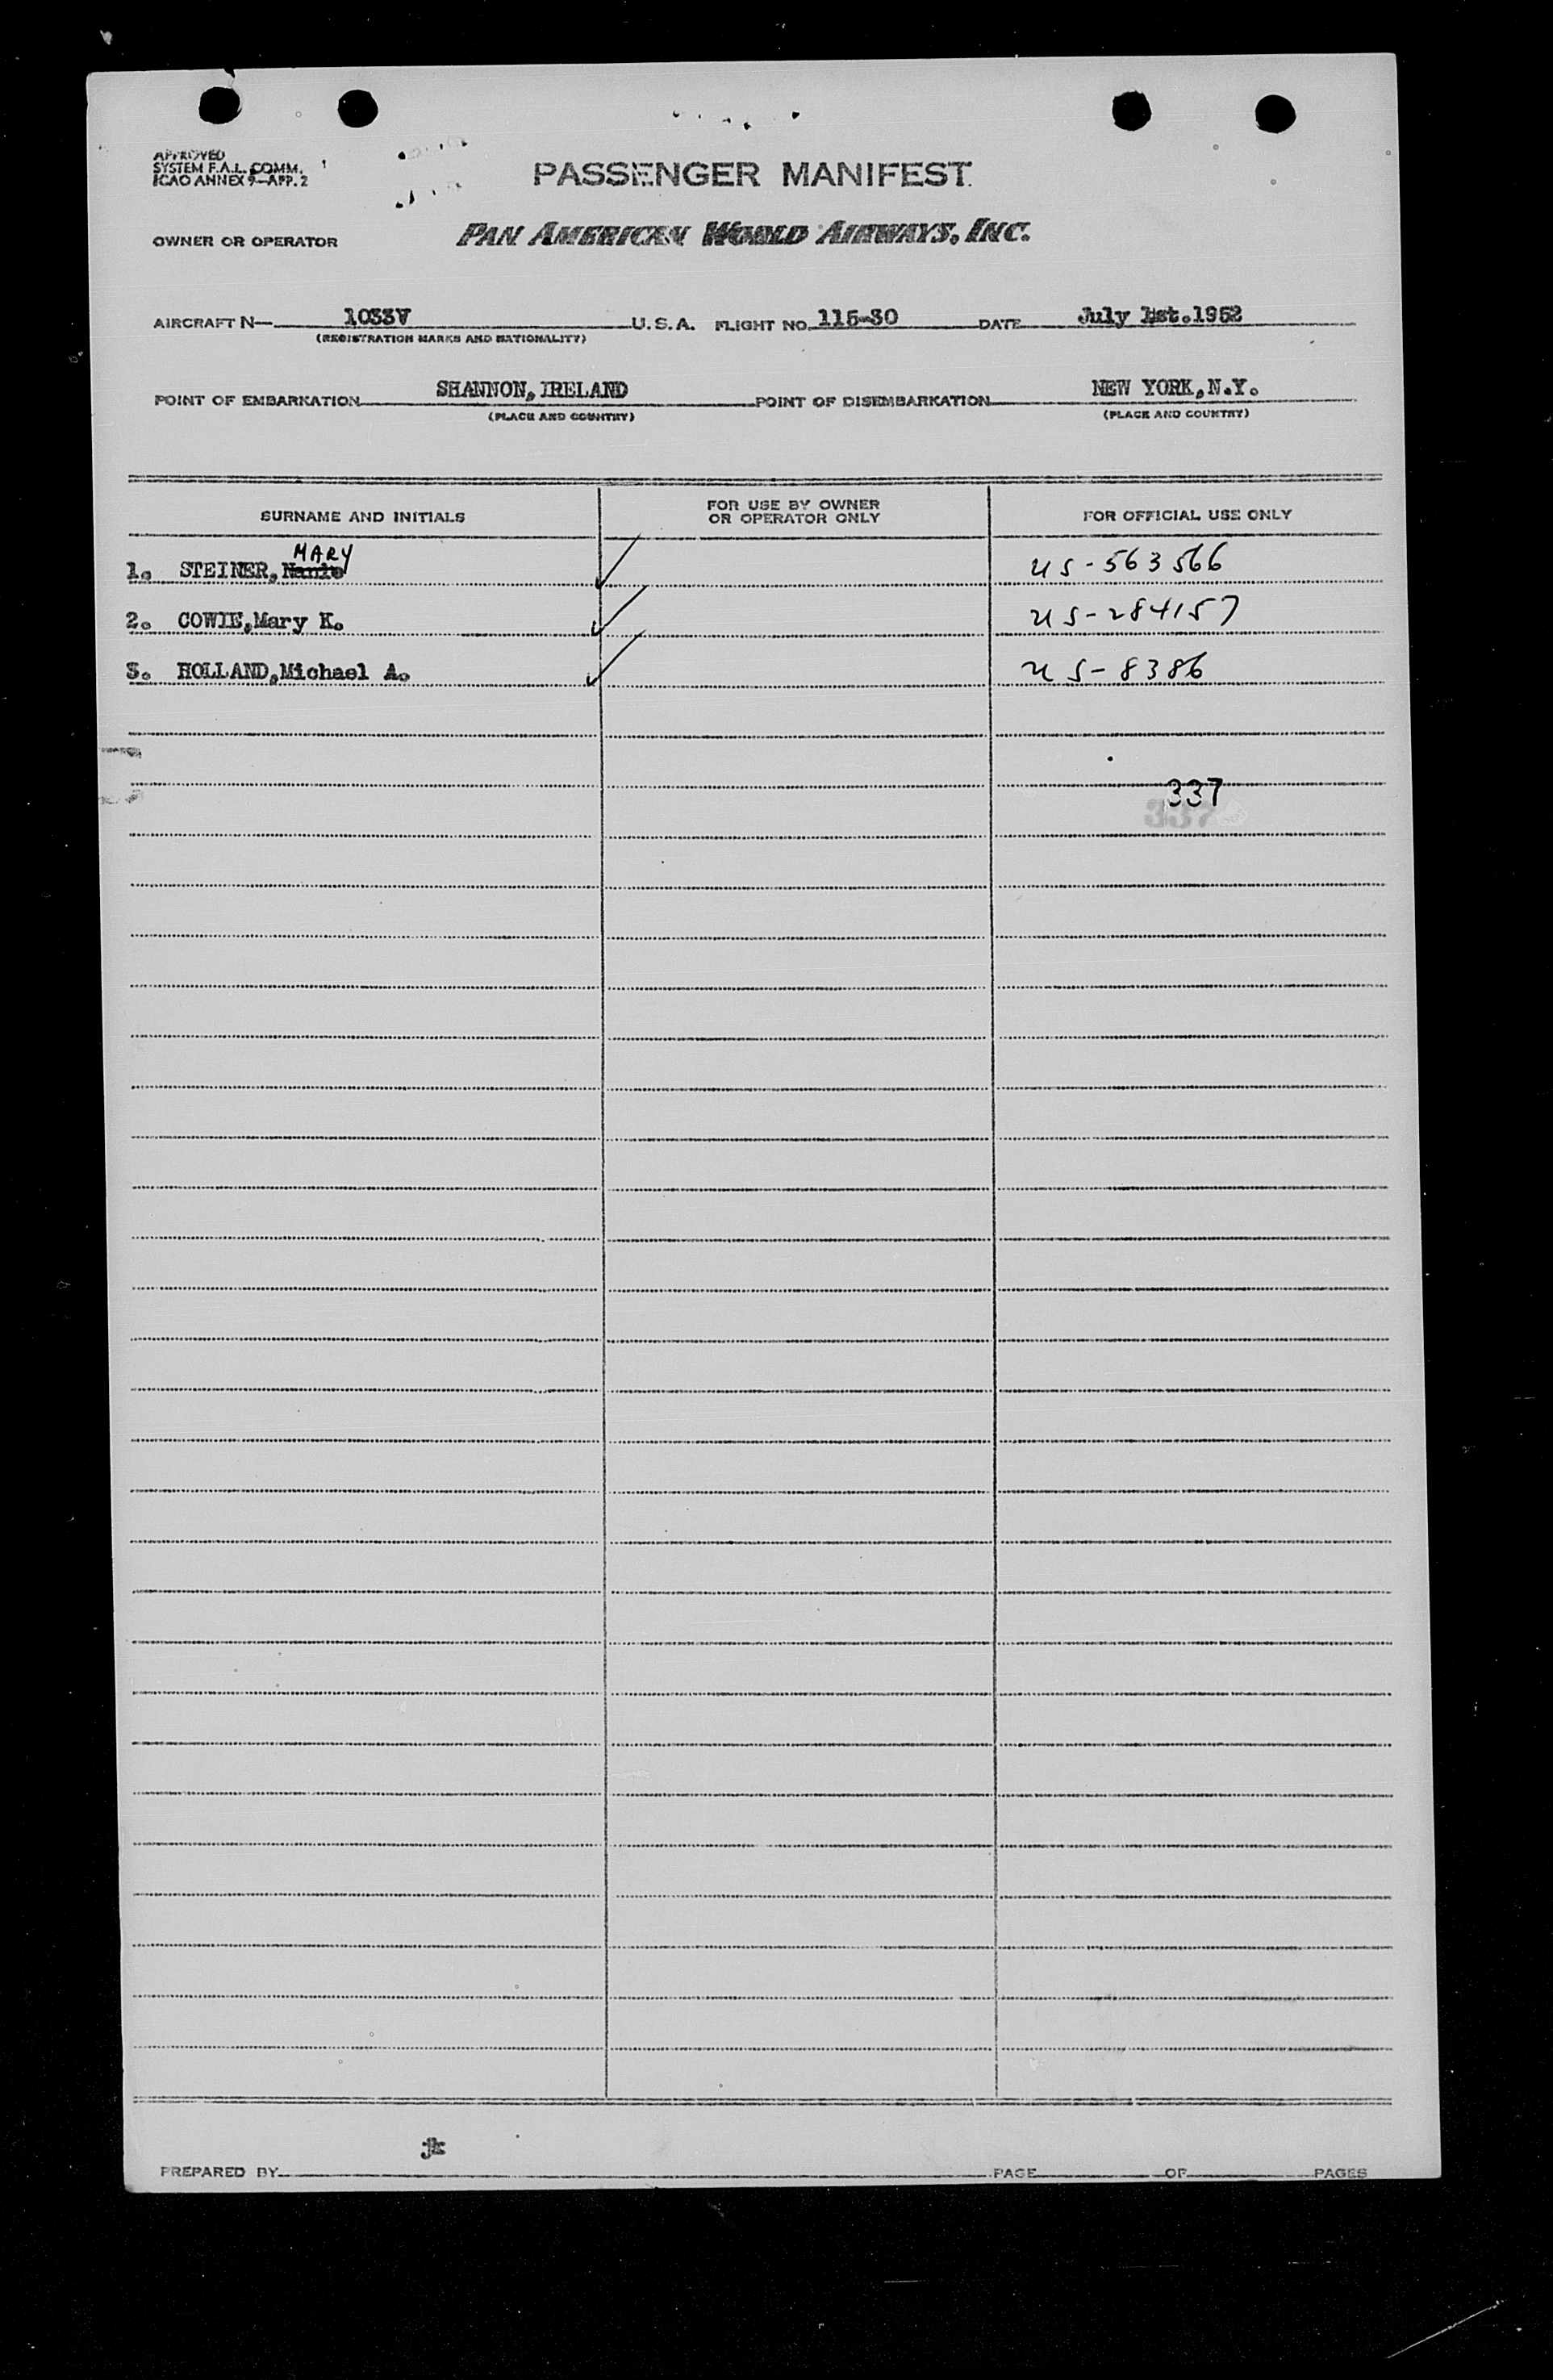 APPROVED
SYSTEM F.A.L. COMM.
ICAO ANNEX 9—APP. 2
PASSENGER MANIFEST
OWNER OR OPERATOR PAN AMERICAN WORLD AIRWAYS, INC.
AIRCRAFT N— 1033V U.S.A. FLIGHT NO. 115-30 DATE July 1st.1952
(REGISTRATION MARKS AND NATIONALITY)
POINT OF EMBARKATION SHANNON,IRELAND POINT OF DISEMBARKATION NEW YORK,N.Y.
(PLACE AND COUNTRY) (PLACE AND COUNTRY)
SURNAME AND INITIALS FOR USE BY OWNER OR OPERATOR ONLY FOR OFFICIAL USE ONLY
MARY
1. STEINER, US-563566
2. COWIE,Mary K. US-284157
3. HOLLAND,Michael A. US-8386
337
337
jk
PREPARED BY PAGE OF PAGES